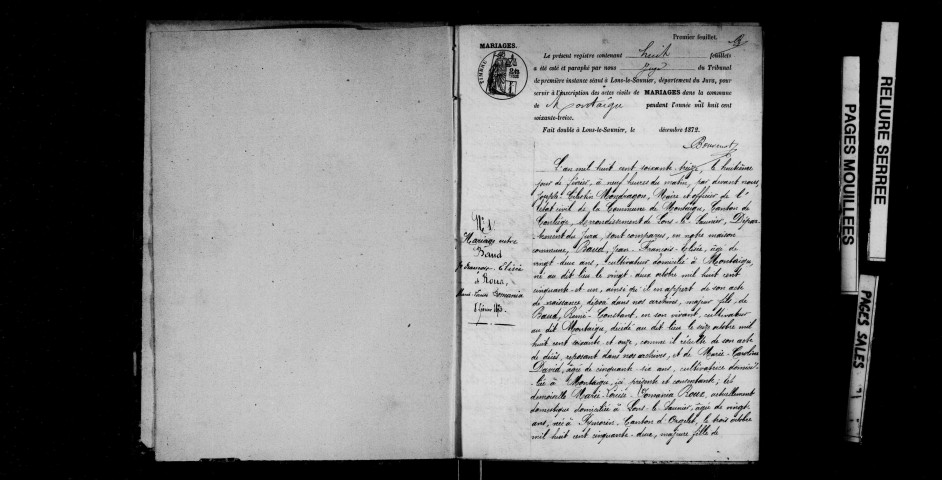 Premier feuillet.
MARIAGES.
Le présent registre contenant huit feuillets
a été coté et paraphé par nous Juge du Tribunal
de première instance séant à Lons-le-Saunier, département du Jura, pour
servir à l'inscription des actes civils de MARIAGES dans la commune
de Montaigu pendant l'année mil huit cent
soixante-treize.
Fait double à Lons-le-Saunier, le décembre 1872.
TIMBRE
N° 1.
Mariage entre
Baud
Jn François-Elisée
&
Roux,
Marie-Louise Zomania
8 février 1873.
L'an mil huit cent soixante-treize, le huitième
jour de février, à neuf heures du matin, par devant nous,
Joseph-Célestin Mondragon, Maire et officier de l'
état civil de la Commune de Montaigu, Canton de
Conliège, Arrondissement de Lons-le-Saunier, Dépar-
tement du Jura, sont comparus, en notre maison
commune, Baud, Jean-François-Elisée, âgé de
vingt deux ans, cultivateur domicilié à Montaigu,
né au dit lieu le vingt-deux octobre mil huit cent
cinquante et un, ainsi qu'il en appert de son acte
de naissance, déposé dans nos archives, majeur fils de
Baud, Rémi-Constant, en son vivant, cultivateur
au dit Montaigu, décédé au dit lieu le onze octobre mil
huit cent soixante et onze, comme il résulte de son acte
de décès, reposant dans nos archives, et de Marie-Caroline
David, âgée de cinquante-six ans, cultivatrice domici-
liée à Montaigu, ici présente et consentante; et
demoiselle Marie-Louise-Zomania Roux, actuellement
domestique domiciliée à Lons-le-Saunier, âgée de vingt
ans, née à Onoz, Canton d'Orgelet, le trois octobre
mil huit cent cinquante-deux, majeure fille de
RELIURE SERREE
PAGES MOUILLEES
PAGES SALES